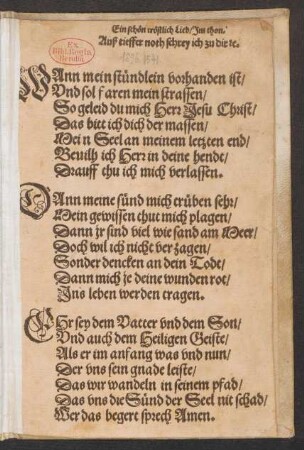 Ein schön tröstlich Lied/ Im thon.
Auß tieffer noth schrey ich zu dir ec.
Ex
Biblioth. Regia
Berolin.
WAnn mein stündlein vorhanden ist/
Vnd sol faren mein strassen/
So geleid du mich Herr Jesu Christ/
Das bitt ich dich der massen/
Mein Seel an meinem letzten end/
Beuilh ich Herr in deine hende/
Drauff thu ich mich verlassen.
DAnn meine sünd mich trüben sehr/
Mein gewissen thut mich plagen/
Dann jr sind viel wie sand am Meer/
Doch wil ich nicht verzagen/
Sonder dencken an dein Todt/
Dann mich je deine wunden rot/
Ins leben werden tragen.
EHr sey dem Vatter vnd dem Son/
Vnd auch dem Heiligen Geiste/
Als er im anfang was vnd nun/
Der vns sein gnade leiste/
Das wir wandeln in seinem pfad/
Das vns die Sünd der Seel nit schad/
Wer das begert sprech Amen.